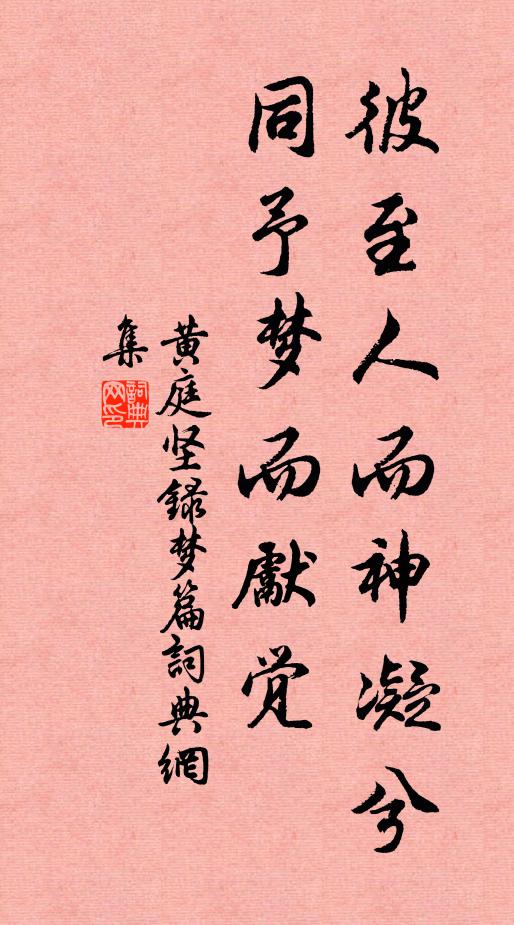 彼至人而神凝兮
同予梦而獻觉
黄庭坚録梦篇詞典網
集
詞典網印